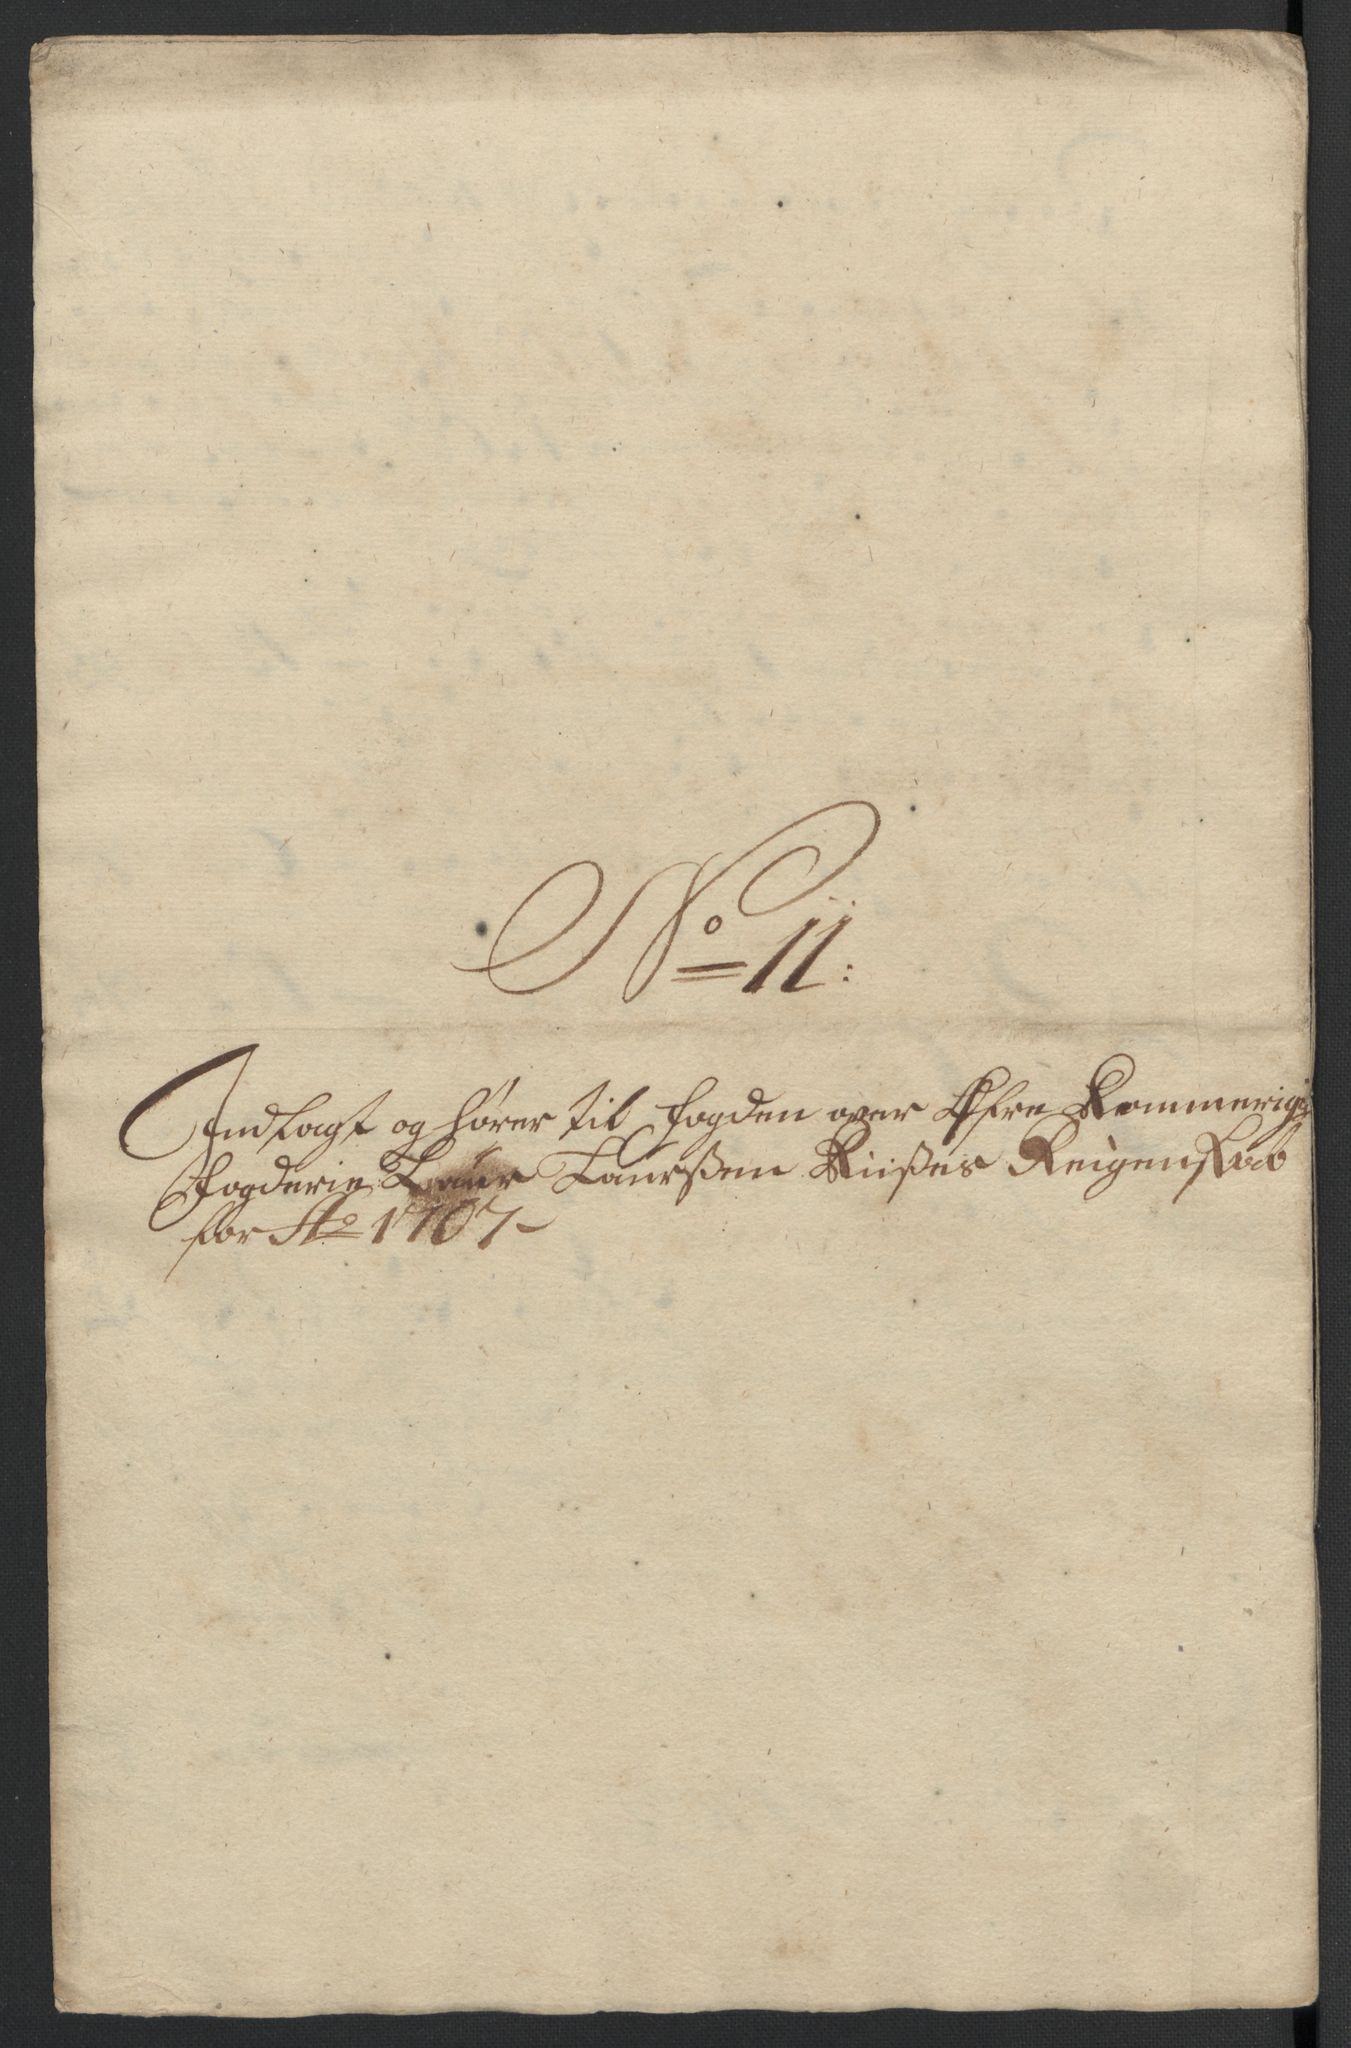 No 11:
Indlagt og hører til fogden over Øfre Rommerigs
Fogderie Laur Laurßen Riißes Reigenskab
for Ao 1707-